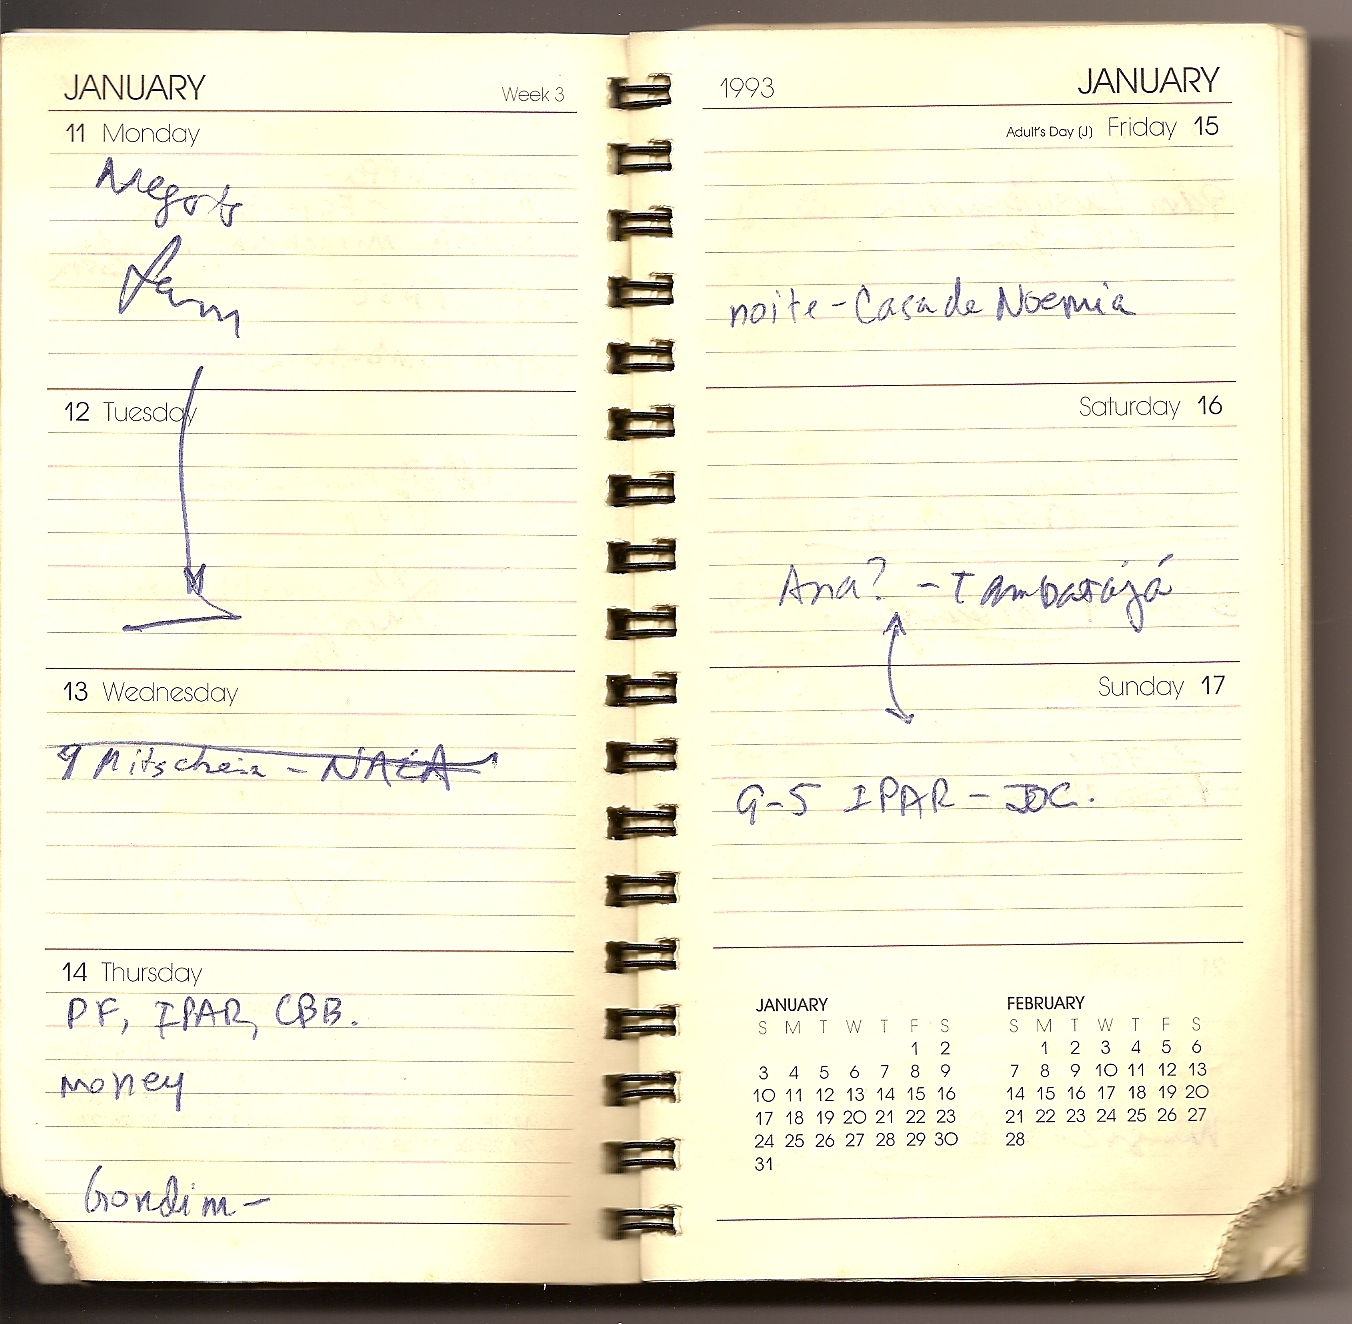 JANUARY Week 3
11 Monday
12 Tuesday
13 Wednesday
9 Mitschein - NAEA
14 Thursday
PF, IPAR, CBB.
money
Gondim -
1993 JANUARY
Adult's Day (J) Friday 15
noite - Casa de Noemia
Saturday 16
Ana? - Tambatajá
Sunday 17
9-5 IPAR - JOC.
JANUARY
S M T W T F S
1 2
3 4 5 6 7 8 9
10 11 12 13 14 15 16
17 18 19 20 21 22 23
24 25 26 27 28 29 30
31
FEBRUARY
S M T W T F S
1 2 3 4 5 6
7 8 9 10 11 12 13
14 15 16 17 18 19 20
21 22 23 24 25 26 27
28